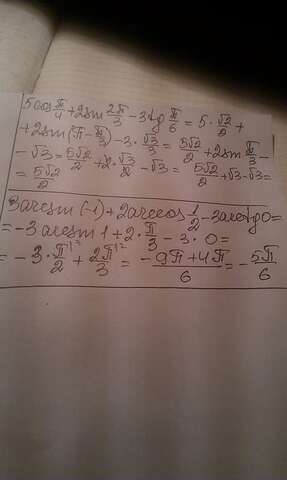 5cos π/4 + 2sin 2π/3 - 3tg π/6 = 5 · √2/2 +
+ 2sin(π - π/3) - 3 · √3/3 = 5√2/2 + 2sin π/3 -
- √3 = 5√2/2 + 2 · √3/2 - √3 = 5√2/2 + √3 - √3 =
= 5√2/2
3arcsin(-1) + 2arccos 1/2 - 3arctg0 =
= -3arcsin1 + 2 · π/3 - 3 · 0 =
= -3 · π/2 + 2π/3 = (-9π + 4π)/6 = -5π/6